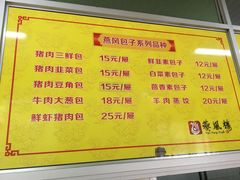 燕风包子系列品种
猪肉三鲜包 15元/屉
猪肉韭菜包 15元/屉
猪肉豆角包 15元/屉
牛肉大葱包 18元/屉
鲜虾猪肉包 25元/屉
鲜韭素包子 12元/屉
白菜素包子 12元/屉
茴香素包子 12元/屉
羊肉蒸饺 20元/屉